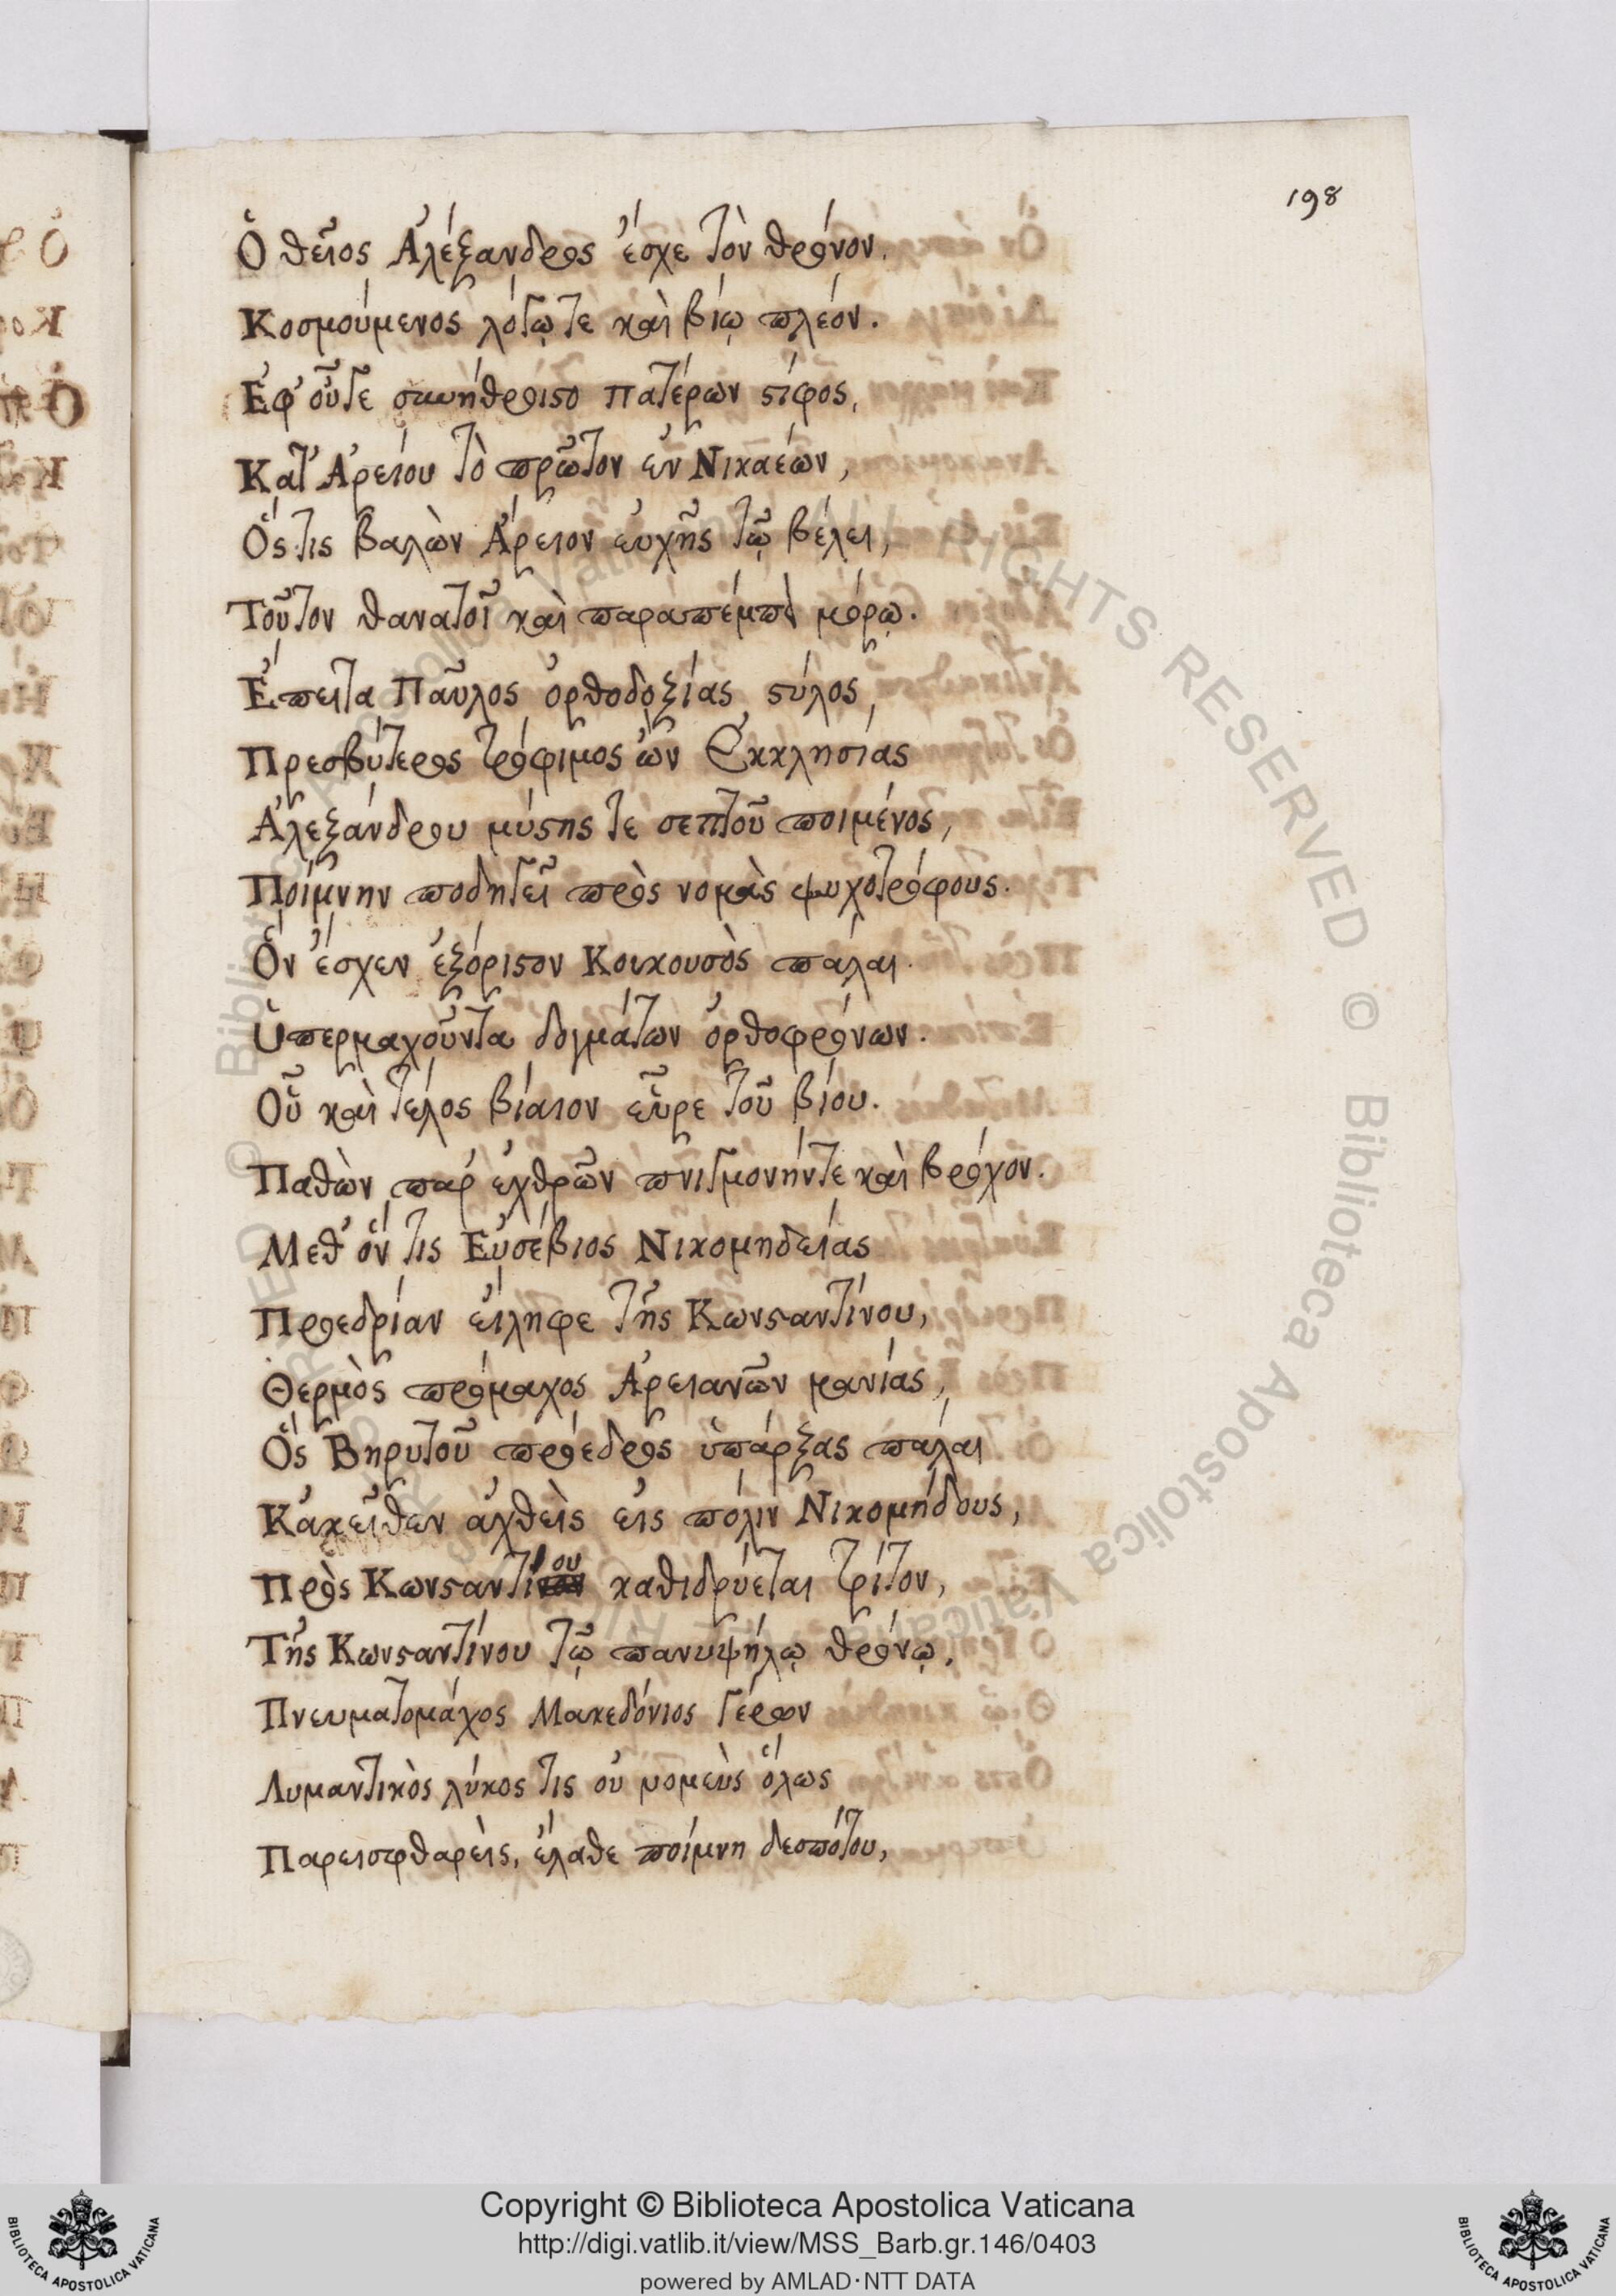 198
Ὁ θεῖος Ἀλέξανδρος ἔσχε τὸν θρόνον.
Κοσμούμενος λόγῳ τε καὶ βίῳ πλέον.
Ἐφ' οὗγε συνήθροιστο πατέρων στίφος,
Κατ' Ἀρείου τὸ πρῶτον ἐν Νικαέων,
Ὅς τις βαλὼν Ἄρειον εὐχῆς τῷ βέλει,
Τοῦτον θανατοῖ καὶ παραπέμπει μόρῳ.
Ἔπειτα Παῦλος ὀρθοδοξίας στύλος,
Πρεσβύτερος τρόφιμος ὢν Ἐκκλησίας
Ἀλεξάνδρου μύστης τε σεπτοῦ ποιμένος,
Ποίμνην ποδηγεῖ πρὸς νομὰς ψυχοτρόφους.
Ὃν ἔσχεν ἐξόριστον Κουκουσὸς πάλαι.
Ὑπερμαχοῦντα δογμάτων ὀρθοφρόνων.
Οὗ καὶ τέλος βίαιον εὗρε τοῦ βίου.
Παθὼν παρ' ἐχθρῶν πνιγμονήν τε καὶ βρόχον.
Μεθ' ὅν τις Εὐσέβιος Νικομηδείας
Προεδρίαν εἴληφε τῆς Κωνσταντίνου,
Θερμὸς πρόμαχος Ἀρειανῶν μανίας,
Ὃς Βηρυτοῦ πρόεδρος ὑπάρξας πάλαι
Κἀκεῖθεν ἀχθεὶς εἰς πόλιν Νικομήδους,
Πρὸς Κωνσταντίου καθιδρύεται τρίτον,
Τῆς Κωνσταντίνου τῷ πανυψήλῳ θρόνῳ.
Πνευματομάχος Μακεδόνιος γέρων
Λυμαντικὸς λύκος τις οὐ νομεὺς ὅλως
Παρεισφθαρεὶς, ἔλαθε ποίμνη δεσπότου,
Copyright © Biblioteca Apostolica Vaticana
http://digi.vatlib.it/view/MSS_Barb.gr.146/0403
powered by AMLAD·NTT DATA
BIBLIOTECA APOSTOLICA VATICANA
BIBLIOTECA APOSTOLICA VATICANA